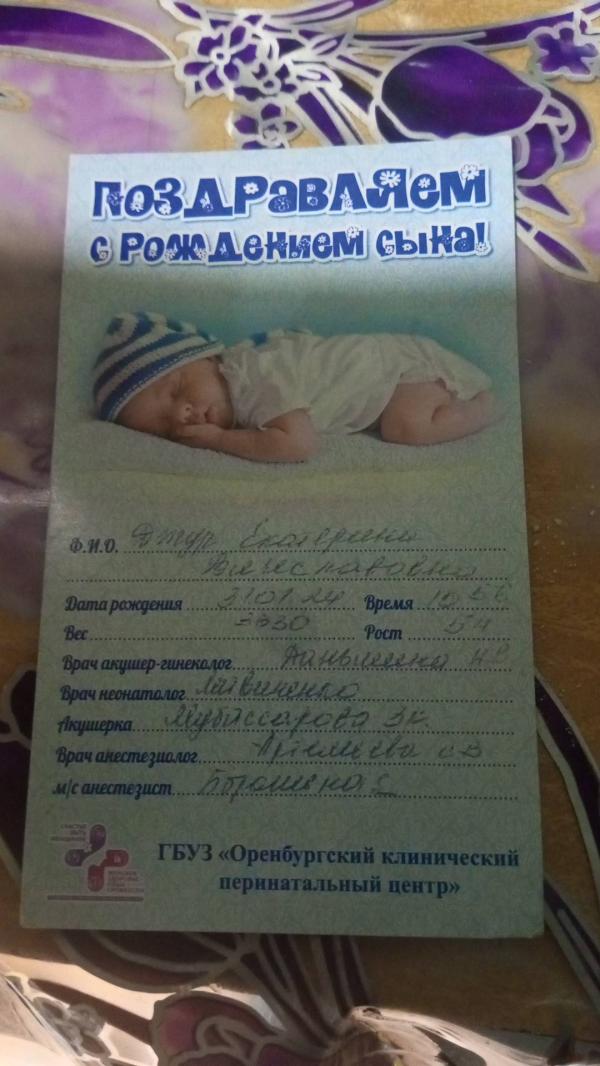 Поздравляем
с рождением сына!
Ф.И.О. Джур Екатерина
Вячеславовна
Дата рождения 31 01 24 Время 15 56
Вес 3630 Рост 54
Врач акушер-гинеколог
Врач неонатолог Литвиненко
Акушерка Мубассарова
Врач анестезиолог
м/с анестезист
СЧАСТЬЕ
БЫТЬ
ЖЕНЩИНОЙ
ГБУЗ «Оренбургский клинический
перинатальный центр»